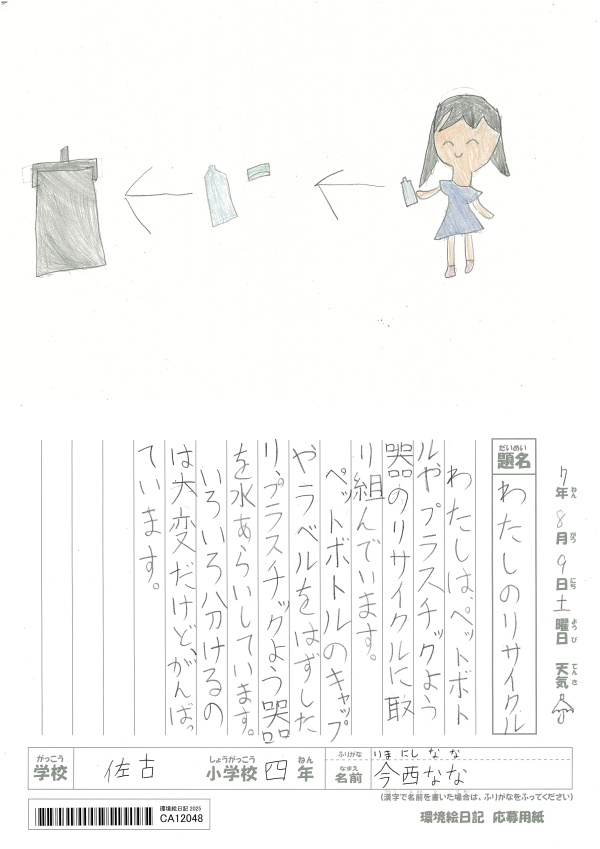 7年8月9日土曜日 天気
ねん がつ にち ようび てんき
だいめい
題名 わたしのリサイクル
わたしは、ペットボト
ルやプラスチックよう
器のリサイクルに取
り組んでいます。
ペットボトルのキャップ
やラベルをはずした
り、プラスチックよう器
を水あらいしています。
いろいろ分けるの
は大変だけど、がんばっ
ています。
がっこう しょうがっこう ねん
学校 佐古 小学校 四年
ふりがな いまにし なな
なまえ
名前 今西なな
(漢字で名前を書いた場合は、ふりがなをふってください)
環境絵日記 2025
CA12048
環境絵日記 応募用紙